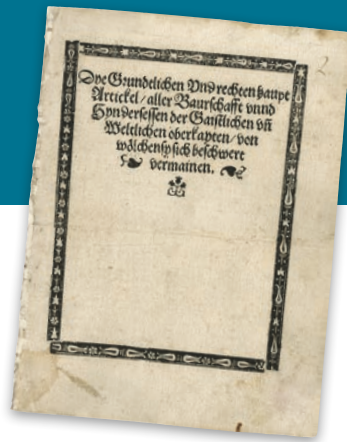 2
Dye Grundtlichen Vnd rechten haupt
Artickel / aller Baurschafft vnnd
Hyndersessen der Gaistlichen vñ
Weltlichen oberkayten / von
wölchen sy sich beschwert
vermainen.